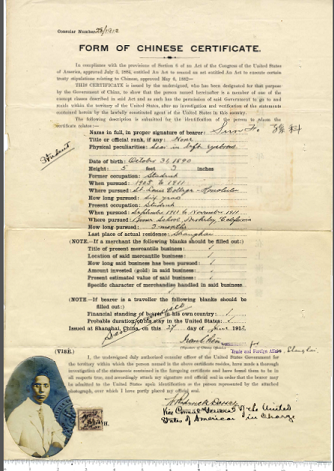 Consular Number
FORM OF CHINESE CERTIFICATE.
In compliance with the provisions of Section 6 of an Act of the Congress of the United States
of America, approved July 5, 1884, entitled An Act to amend an act entitled An Act to execute certain
treaty stipulations relating to Chinese, approved May 6, 1882—
THIS CERTIFICATE is issued by the undersigned, who has been designated for that purpose
by the Government of China, to show that the person named hereinafter is a member of one of the
exempt classes described in said Act and as such has the permission of said Government to go to and
reside within the territory of the United States, after an investigation and verification of the statements
contained herein by the lawfully constituted agent of the United States in this country.
The following description is submitted for the identification of the person to whom the
certificate relates:—
Name in full, in proper signature of bearer: Sun Fo
Student
Title or official rank, if any: None
Physical peculiarities: Scar in left eyebrow
Date of birth: October 1890
Height: 5 feet 3 inches
Former occupation: Student
When pursued: 1908 to 1911
Where pursued: St Louis College Honolulu
How long pursued: six years
Present occupation: Student
When pursued: September 1911 to November 1911
Where pursued: School Berkeley California
How long pursued: 3 months
Last place of actual residence: Shanghai
(NOTE.—If a merchant the following blanks should be filled out:)
Title of present mercantile business:
Location of said mercantile business:
How long said business has been pursued:
Amount invested (gold) in said business:
Present estimated value of said business:
Specific character of merchandise handled in said business
(NOTE.—If bearer is a traveller the following blanks should be
filled out:)
Financial standing of bearer in his own country:
Probable duration of his stay in the United States:
Issued at Shanghai, China, on this 27 day of June 1912
(VISÉ.)
I, the undersigned duly authorized consular officer of the United States Government for
the territory within which the person named in the above certificate resides, have made a thorough
investigation of the statements contained in the foregoing certificate and have found them to be in
all respects true, and accordingly attach my signature and official seal in order that the bearer may
be admitted to the United States upon identification as the person represented by the attached
photograph, over which I have partly placed my official seal.
Vice Consul General of the United
States of America in Charge